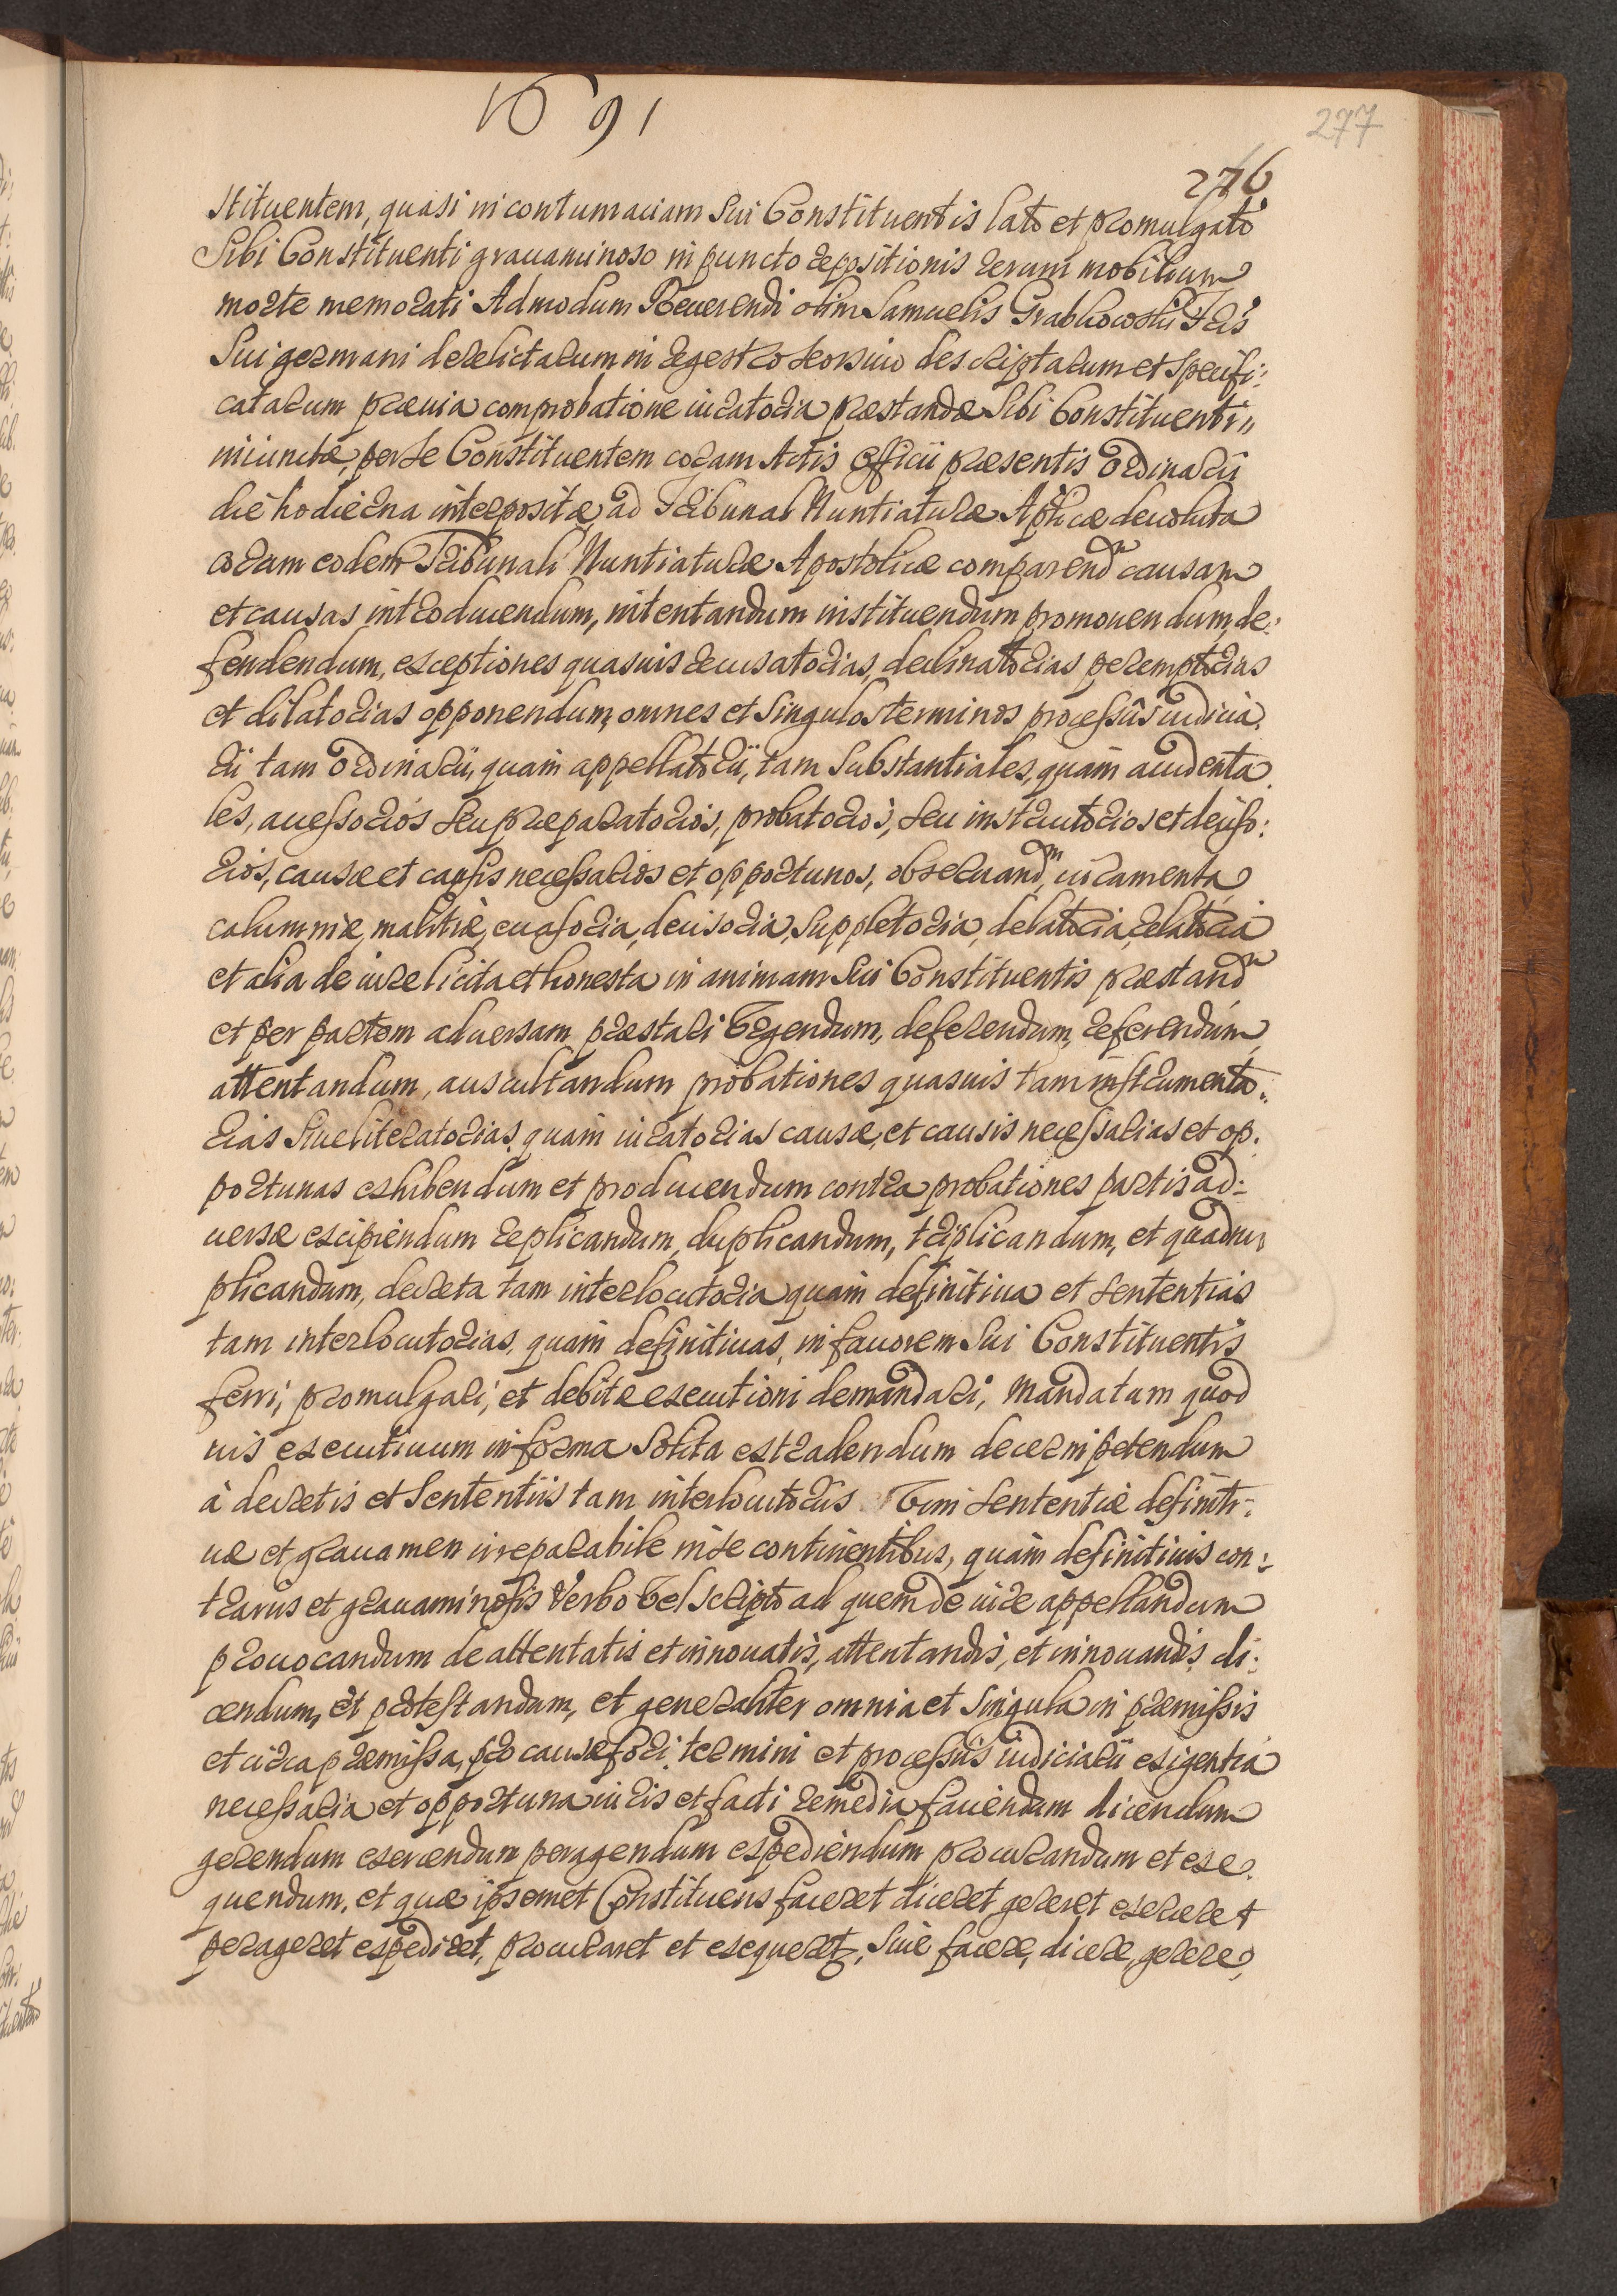 1691
277
276
stituentem, quasi in contumaciam sui Constituentis lato et promulgato
Sibi Constituenti grauaminoso in puncto repositionis rerum mobilium
morte memorati Admodum Reuerendi olim Samuelis Grabkowski Fris
Sui germani derelictarum in regestro seorsiuo descriptarum et specifi:
catarum præuia comprobatione iuratoria præstandæ Sibi Constituenti
iniunctæ, per se Constituentem coram Actis Officii præsentis Ordinarii
die hodierna interpositæ ad Tribunal Nuntiaturæ Aplicæ deuoluta
coram eodem Tribunali Nuntiaturæ Apostolicæ comparendm causam
et causas introducendum, intentandum instituendum promouendum, de:
fendendum, exceptiones quasuis recusatorias, declinatorias peremptorias
et dilatorias opponendum, omnes et Singulos terminos processûs iudicia.
rii tam Ordinarii, quam appellatorii, tam Substantiales, quam accidenta
les, accessorios seu præparatorios, probatorios, seu instructorios et deciso:
rios, causæ et causis necessarios et opportunos, obseruandm, iuramenta
calumniæ, malitiæ, euasoria, decisoria, suppletoria, delatoria, relatoria
et alia de iure licita et honesta in animam Sui Constituentis præstandm
et per partem aduersam præstari Vrgendum, deferendum, referendum
attentandum, auscultandum probationes quasuis tam instrumenta:
rias siue literatorias, quam iuratorias causæ, et causis necessarias et op.
portunas exhibendum et producendum contra probationes partis ad:
uersæ excipiendum replicandum, duplicandum, triplicandum, et quadru
plicandum, decreta tam interlocutoria quam definitiua et sententias
tam interlocutorias, quam definitiuas, in fauorem Sui Constituentis
ferri, promulgari, et debitæ executioni demandari, Mandatum quod
uis executiuum in forma Solita extradendum decerni petendum
à decretis et Sententiis tam interlocutoriis Vim sententiæ definiti:
uæ et grauamen irreparabile in se continentibus, quam definitiuis con:
trariis et grauaminosis Verbo Vel scripto ad quem de iure appellandum
prouocandum de attentatis et innouatis, attentandis, et innouandis, di:
cendum, et protestandum, et generaliter omnia et Singula in præmissis
et circa præmissa, pro causæ fori, termini et processus iudiciarii exigentiâ
necessaria et opportuna iuris et facti remedia faciendum dicendum
gerendum exercendum peragendum expediendum procurandum et exe
quendum, et quæ ipsemet Constituens faceret diceret gereret exerceret
perageret expediret, procuraret et exequeretur, siue facere, dicere, gerere,